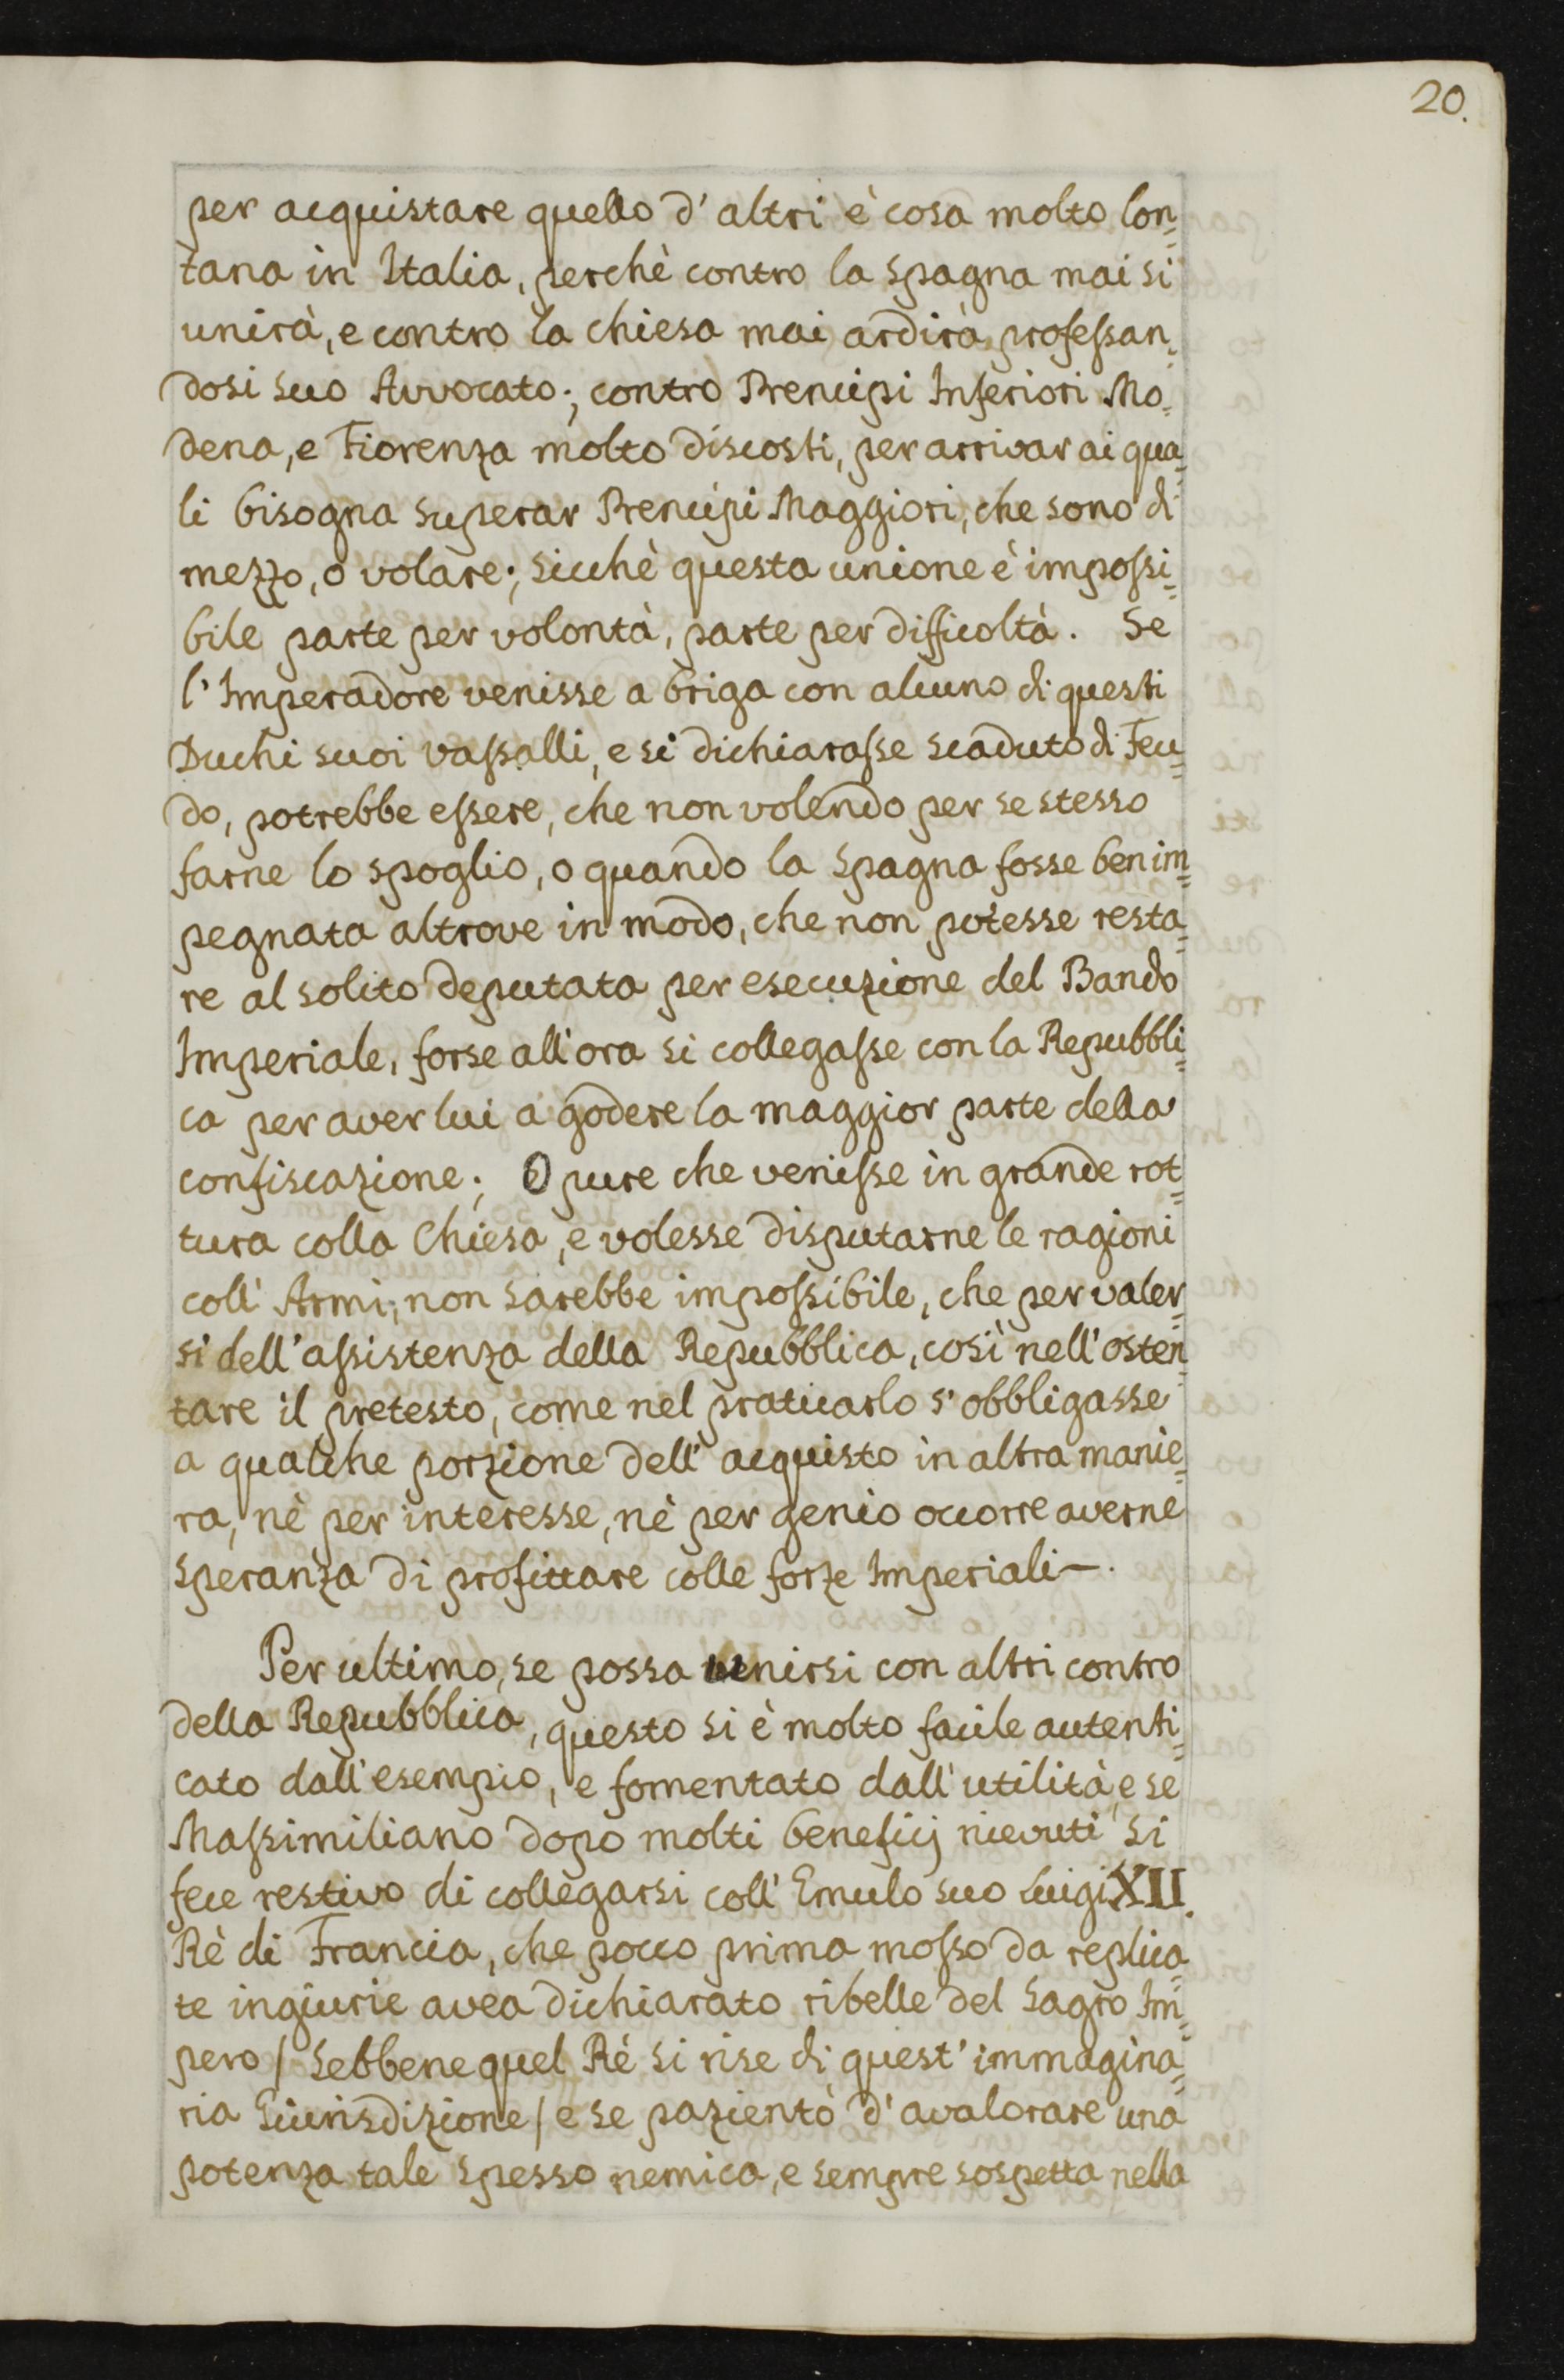 20.
per acquistare quello d'altri è cosa molto lon=
tana in Italia, perchè contro la Spagna mai si
unirà, e contro la Chiesa mai ardirà, professan=
dosi suo Avvocato; contro Prencipi Inferiori Mo=
dena, e Fiorenza molto discosti, per arrivar ai qua=
li bisogna superar Prencipi Maggiori, che sono di
mezzo, o volare; sicchè questa unione è impossi=
bile parte per volontà, parte per difficoltà. Se
l'Imperadore venisse a briga con alcuno di questi
Duchi suoi vassalli, e si dichiarasse scaduto di Feu=
do, potrebbe essere, che non volendo per se stesso
farne lo spoglio, o quando la Spagna fosse ben im=
pegnata altrove in modo, che non potesse resta=
re al solito deputata per esecuzione del Bando
Imperiale, forse all'ora si collegasse con la Repubbli=
ca per aver lui a godere la maggior parte della
confiscazione; O pure che venisse in grande rot=
tura colla Chiesa, e volesse disputarne le ragioni
coll'Armi, non sarebbe impossibile, che per valer=
si dell'assistenza della Repubblica, così nell'osten=
tare il pretesto, come nel praticarlo s'obbligasse
a qualche porzione dell'acquisto in altra manie=
ra, nè per interesse, nè per genio occorre averne
speranza di profittare colle forze Imperiali—.
Per ultimo, se possa unirsi con altri contro
della Repubblica, questo si è molto facile autenti=
cato dall'esempio, e fomentato dall'utilità, e se
Massimiliano dopo molti beneficij ricevuti si
fece restivo di collegarsi coll'Emulo suo Luigi XII.
Rè di Francia, che poco prima mosso da replica=
te ingiurie avea dichiarato ribelle del Sagro Im=
pero / Sebbene quel Rè si rise di quest'immagina=
ria Giurisdizione / e se pazientò d'avalorare una
potenza tale spesso nemica, e sempre sospetta nella